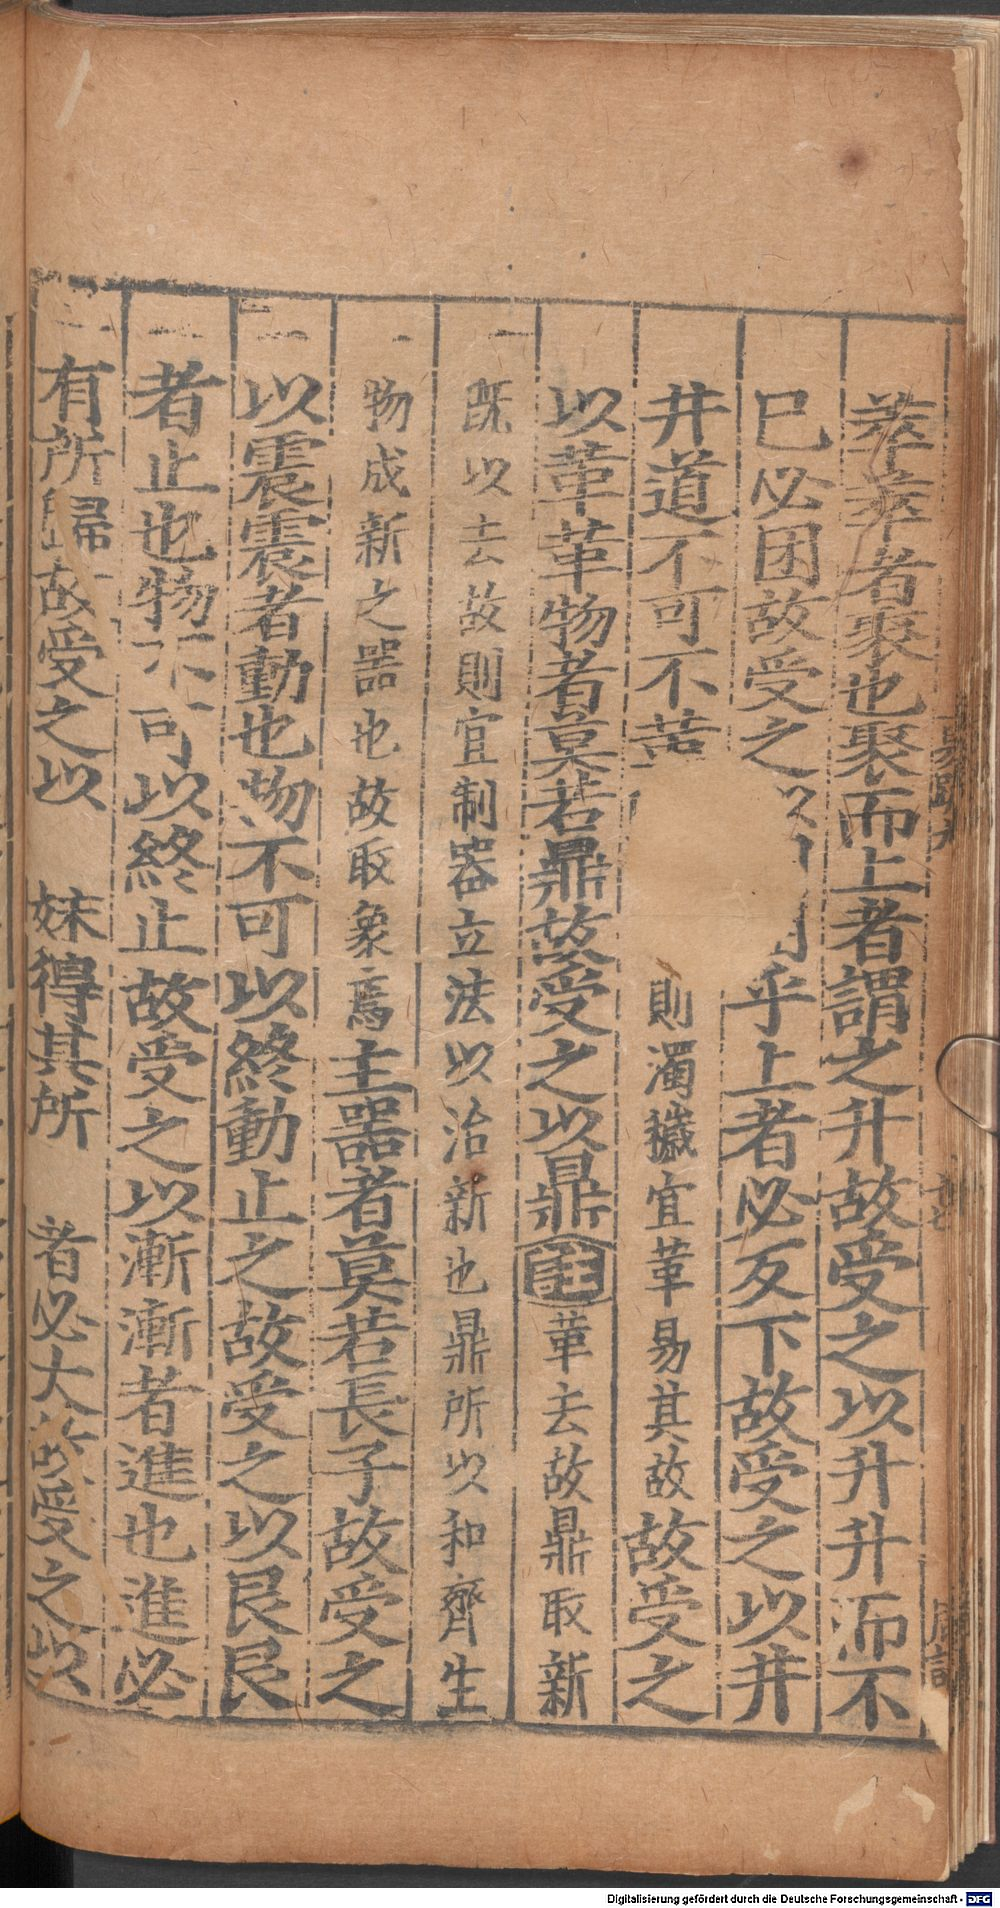 萃萃者聚也聚而上者謂之升故受之以升升而不
已必困故受之乎上者必反下故受之以井
井道不可不則濁穢宜革易其故故受之
以革革物者莫若鼎故受之以鼎註革去故鼎取新
既以去故則宜制器立法以治新也鼎所以和齊生
物成新之器也故取象焉主器者莫若長子故受之
以震震者動也物不可以終動止之故受之以艮艮
者止也物不可以終止故受之以漸漸者進也進必
有所歸故受之以妹得其所者必大故受之以
Digitalisierung gefördert durch die Deutsche Forschungsgemeinschaft - DFG